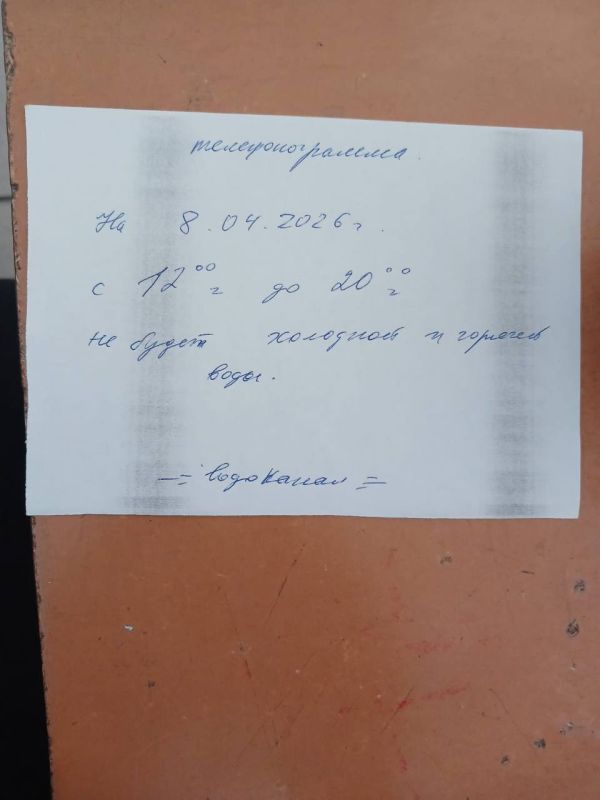 телефонограмма.
На 8.04.2026г.
с 12 00 г до 20 00 г
не будет холодной и горячей
воды.
= Водоканал =